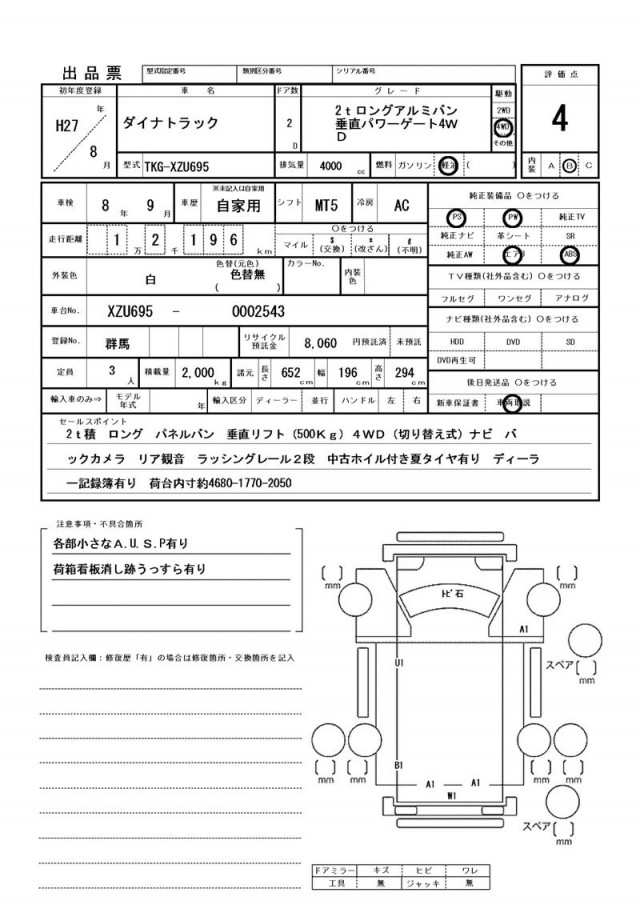 出品票 型式指定番号 類別区分番号 シリアル番号
評価点
4
初年度登録 車名 ドア数 グレード 駆動
H27年 ダイナトラック 2D 2tロングアルミバン 2WD
8月 垂直パワーゲート4W 4WD
D その他
型式 TKG-XZU695 排気量 4000cc 燃料 ガソリン 軽油 ( ) 内装 A B C
車検 8年 9月 車歴 ※未記入は自家用 自家用 シフト MT5 冷房 AC
純正装備品 ○をつける
走行距離 1万 2千 196km ○をつける
マイル $(交換) *(改ざん) #(不明)
PS PW 純正TV
純正ナビ 革シート SR
純正AW エアB ABS
外装色 白 色替(元色) 色替無 ( ) カラーNo. 内装色
TV種類(社外品含む) ○をつける
フルセグ ワンセグ アナログ
車台No. XZU695 - 0002543
ナビ種類(社外品含む) ○をつける
登録No. 群馬 リサイクル預託金 8,060 円預託済 未預託
HDD DVD SD
DVD再生可
定員 3人 積載量 2,000kg 諸元 長さ 652cm 幅 196cm 高さ 294cm
後日発送品 ○をつける
輸入車のみ⇒ モデル年式 年 輸入区分 ディーラー 並行 ハンドル 左 右
新車保証書 車両取説
セールスポイント
2t積 ロング パネルバン 垂直リフト(500Kg)4WD(切り替え式)ナビ バ
ックカメラ リア観音 ラッシングレール2段 中古ホイル付き夏タイヤ有り ディーラ
ー記録簿有り 荷台内寸約4680-1770-2050
注意事項・不具合箇所
各部小さなA.U.S.P有り
荷箱看板消し跡うっすら有り
検査員記入欄:修復歴「有」の場合は修復箇所・交換箇所を記入
[ ]mm [ ]mm
トビ石
A1
スペア[ ]mm
U1
B1
[ ]mm [ ]mm [ ]mm [ ]mm
A1 A1
W1
スペア[ ]mm
ドアミラー キズ ヒビ ワレ
工具 無 ジャッキ 無